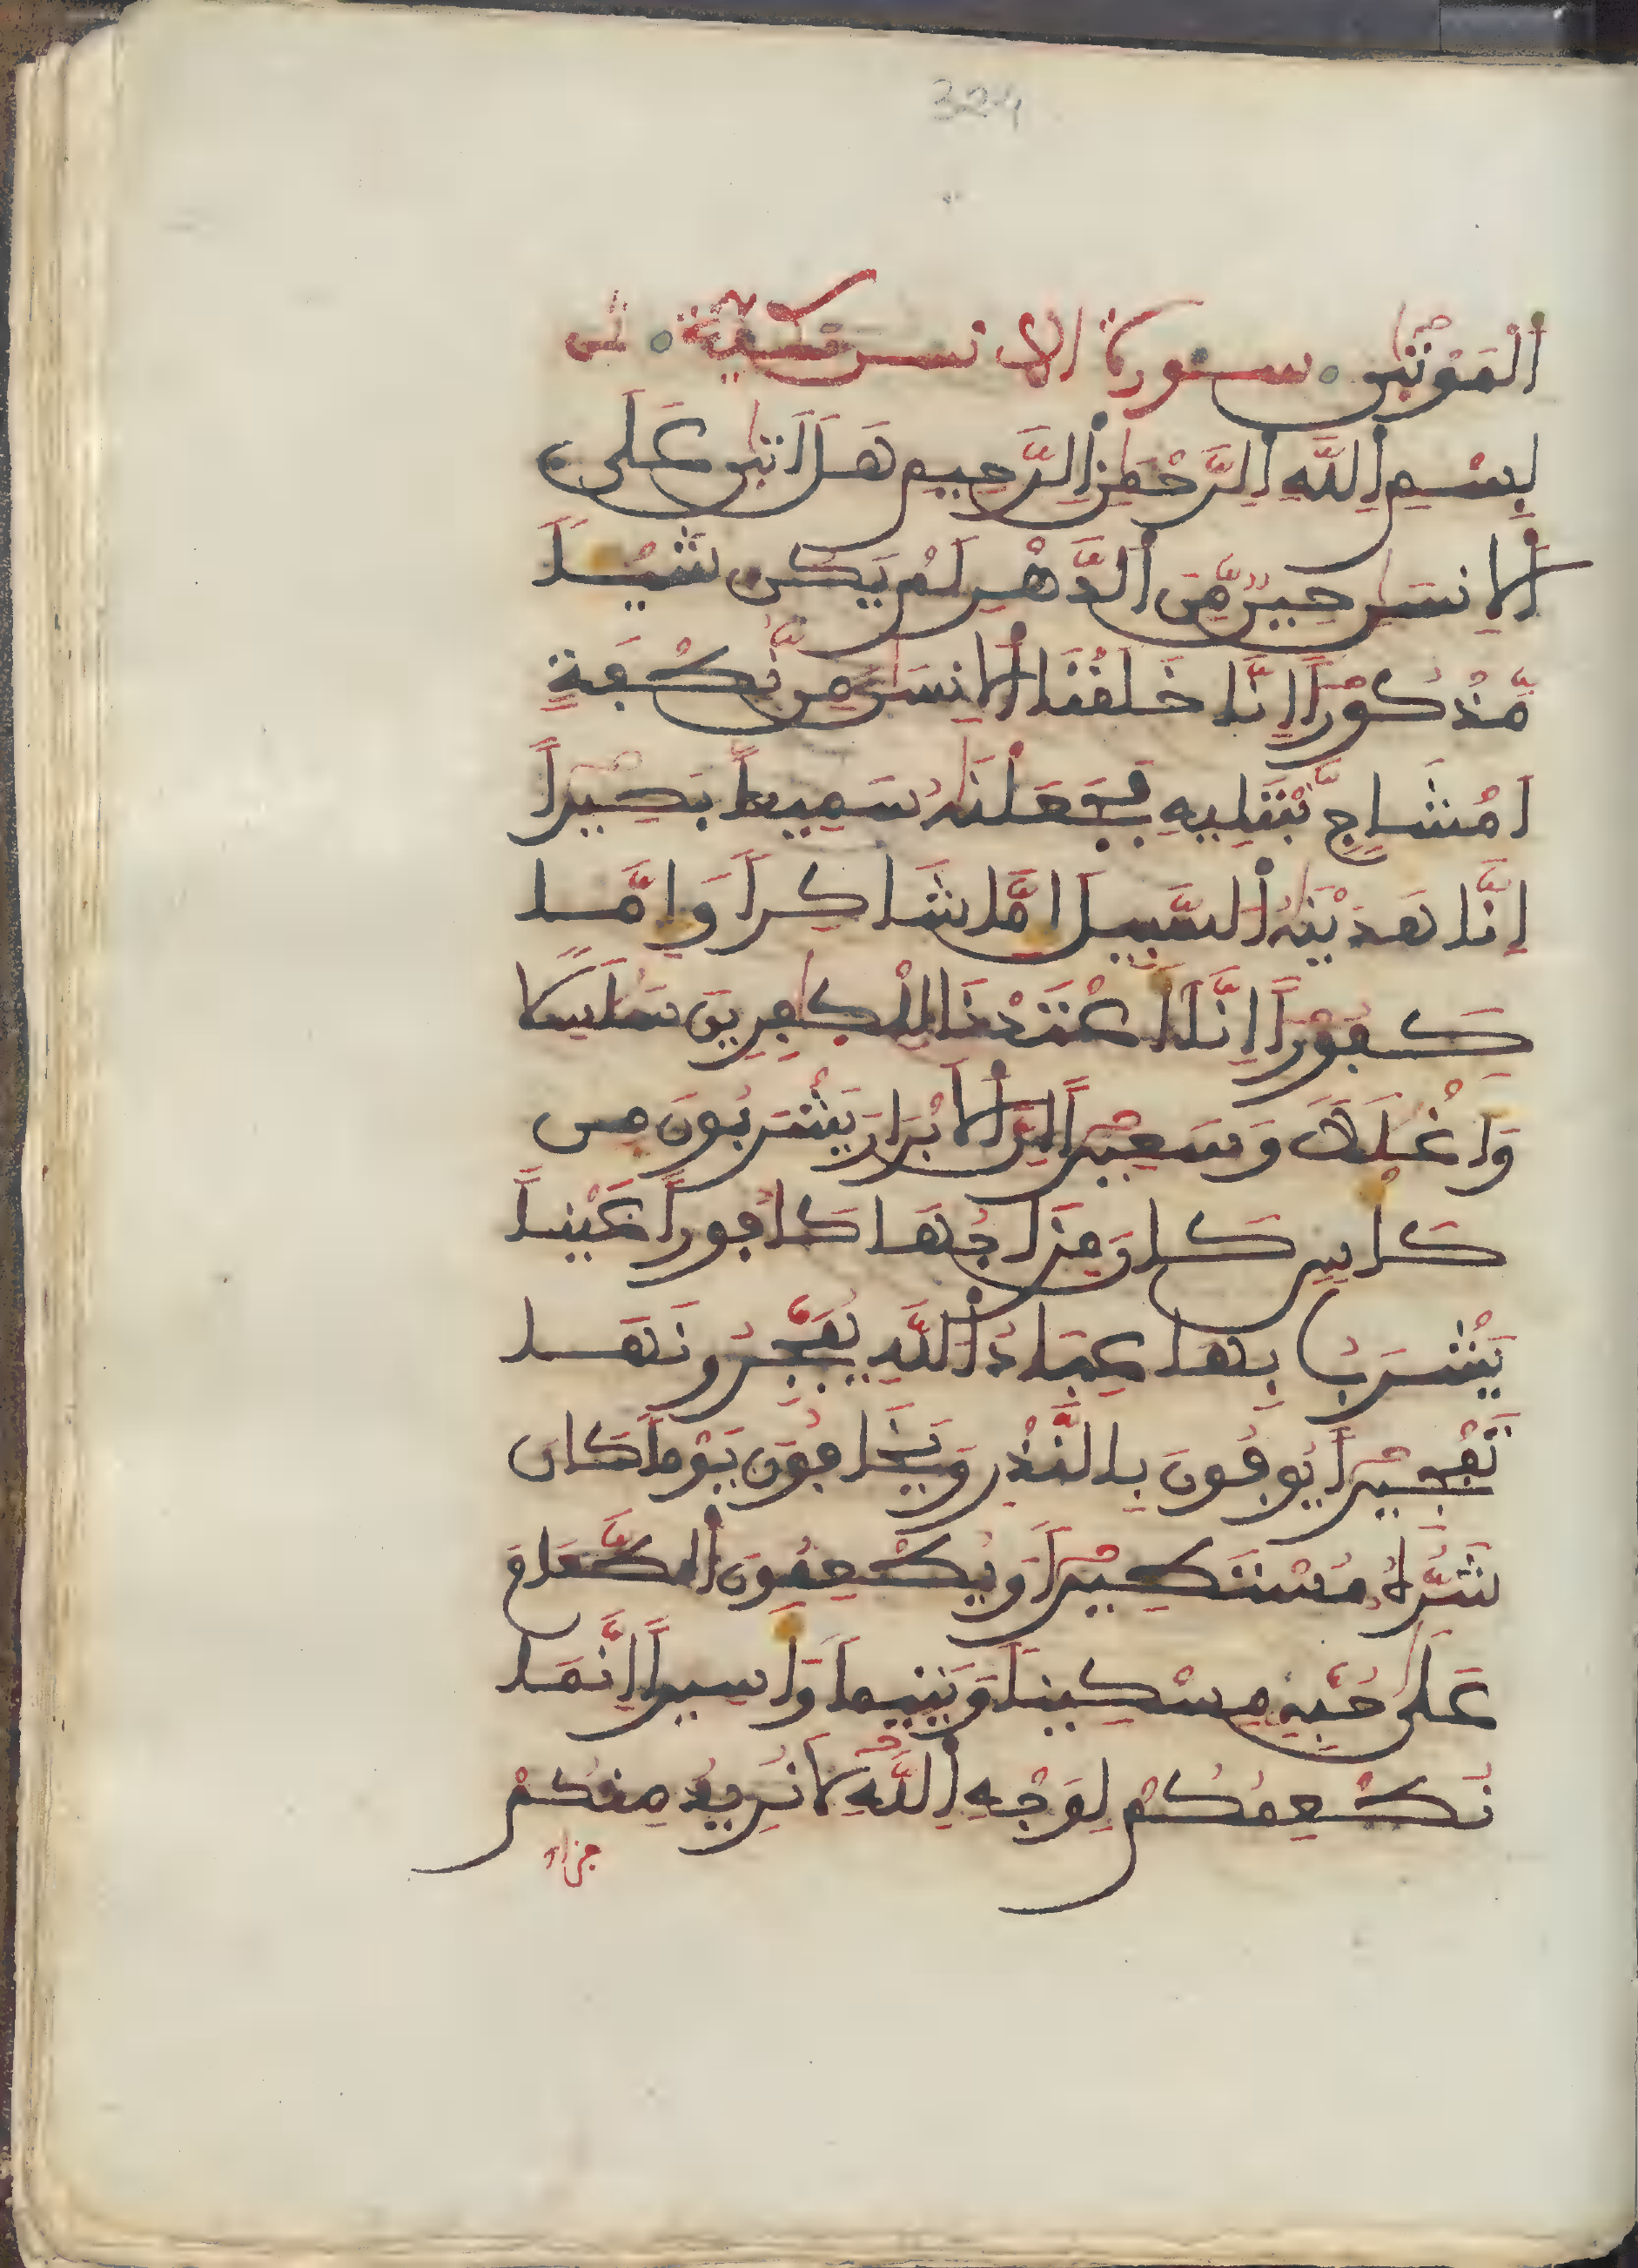 324
الموتى سورة الانسن مكية لى
بِسْمِ اللَّهِ الرَّحْمَنِ الرَّحِيمِ هَلَ اتىٰ عَلَى
الِانسَٰنِ حِينٌ مِّنَ الدَّهْرِ لَمْ يَكُن شَيْـًٔا
مَّذْكُوراً اِنَّا خَلَقْنَا الِانسَٰنَ مِن نُّطْفَةٍ
اَمْشَاجٍ نَّبْتَلِيهِ فَجَعَلْنَٰهُ سَمِيعاً بَصِيراً
اِنَّا هَدَيْنَٰهُ السَّبِيلَ اِمَّا شَاكِراً وَاِمَّا
كَفُوراً اِنَّا أَعْتَدْنَا لِلْكَٰفِرِينَ سَلَٰسِلًا
وَأَغْلَٰلًا وَسَعِيراً اِنَّ الَابْرَارَ يَشْرَبُونَ مِن
كَأْسٍ كَانَ مِزَاجُهَا كَافُوراً عَيْناً
يَشْرَبُ بِهَا عِبَادُ اللَّهِ يُفَجِّرُونَهَا
تَفْجِيراً يُوفُونَ بِالنَّذْرِ وَيَخَافُونَ يَوْماً كَانَ
شَرُّهُ مُسْتَطِيراً وَيُطْعِمُونَ الطَّعَامَ
عَلَىٰ حُبِّهِ مِسْكِيناً وَيَتِيماً وَأَسِيراً اِنَّمَا
نُطْعِمُكُمْ لِوَجْهِ اللَّهِ لَا نُرِيدُ مِنكُمْ
جزاء